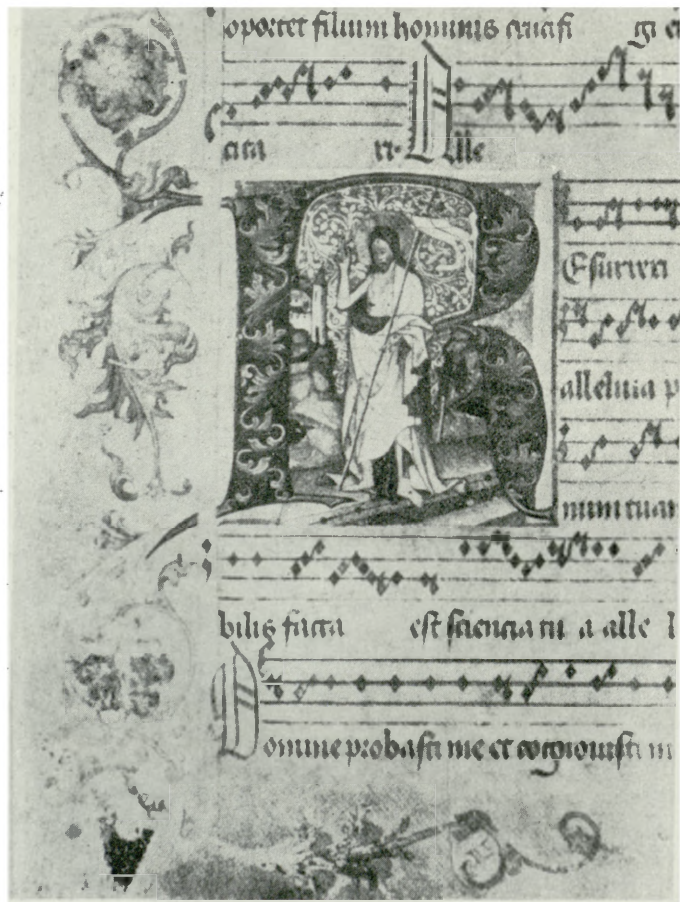 oportet filium hominis crucifi gi et
cita ri. Alle
R
Esurrexi
alleluia p
num tuam
bilis facta est sciencia tu a alle l
Domine probasti me et cognouisti m